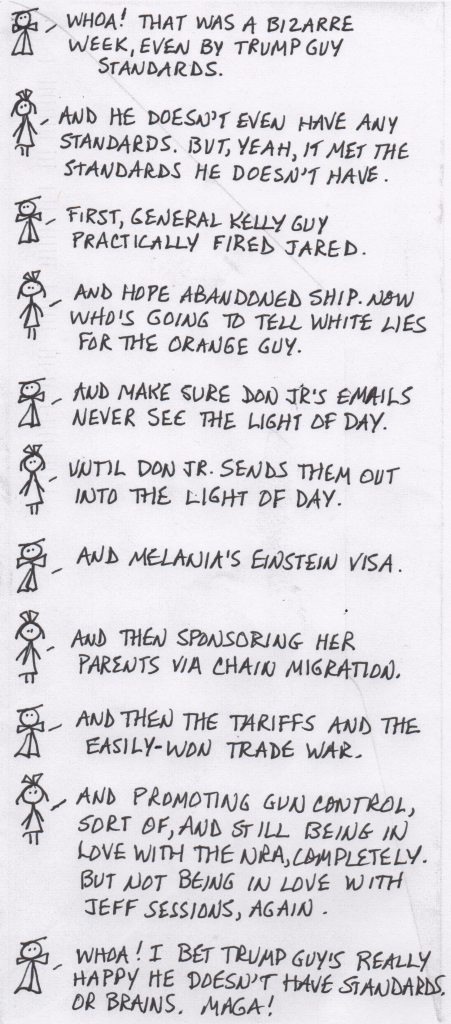 WHOA! THAT WAS A BIZARRE
WEEK, EVEN BY TRUMP GUY
STANDARDS.
AND HE DOESN'T EVEN HAVE ANY
STANDARDS. BUT, YEAH, IT MET THE
STANDARDS HE DOESN'T HAVE.
FIRST, GENERAL KELLY GUY
PRACTICALLY FIRED JARED.
AND HOPE ABANDONED SHIP. NOW
WHO'S GOING TO TELL WHITE LIES
FOR THE ORANGE GUY.
AND MAKE SURE DON JR'S EMAILS
NEVER SEE THE LIGHT OF DAY.
UNTIL DON JR. SENDS THEM OUT
INTO THE LIGHT OF DAY.
AND MELANIA'S EINSTEIN VISA.
AND THEN SPONSORING HER
PARENTS VIA CHAIN MIGRATION.
AND THEN THE TARIFFS AND THE
EASILY-WON TRADE WAR.
AND PROMOTING GUN CONTROL,
SORT OF, AND STILL BEING IN
LOVE WITH THE NRA, COMPLETELY.
BUT NOT BEING IN LOVE WITH
JEFF SESSIONS, AGAIN.
WHOA! I BET TRUMP GUY'S REALLY
HAPPY HE DOESN'T HAVE STANDARDS.
OR BRAINS. MAGA!